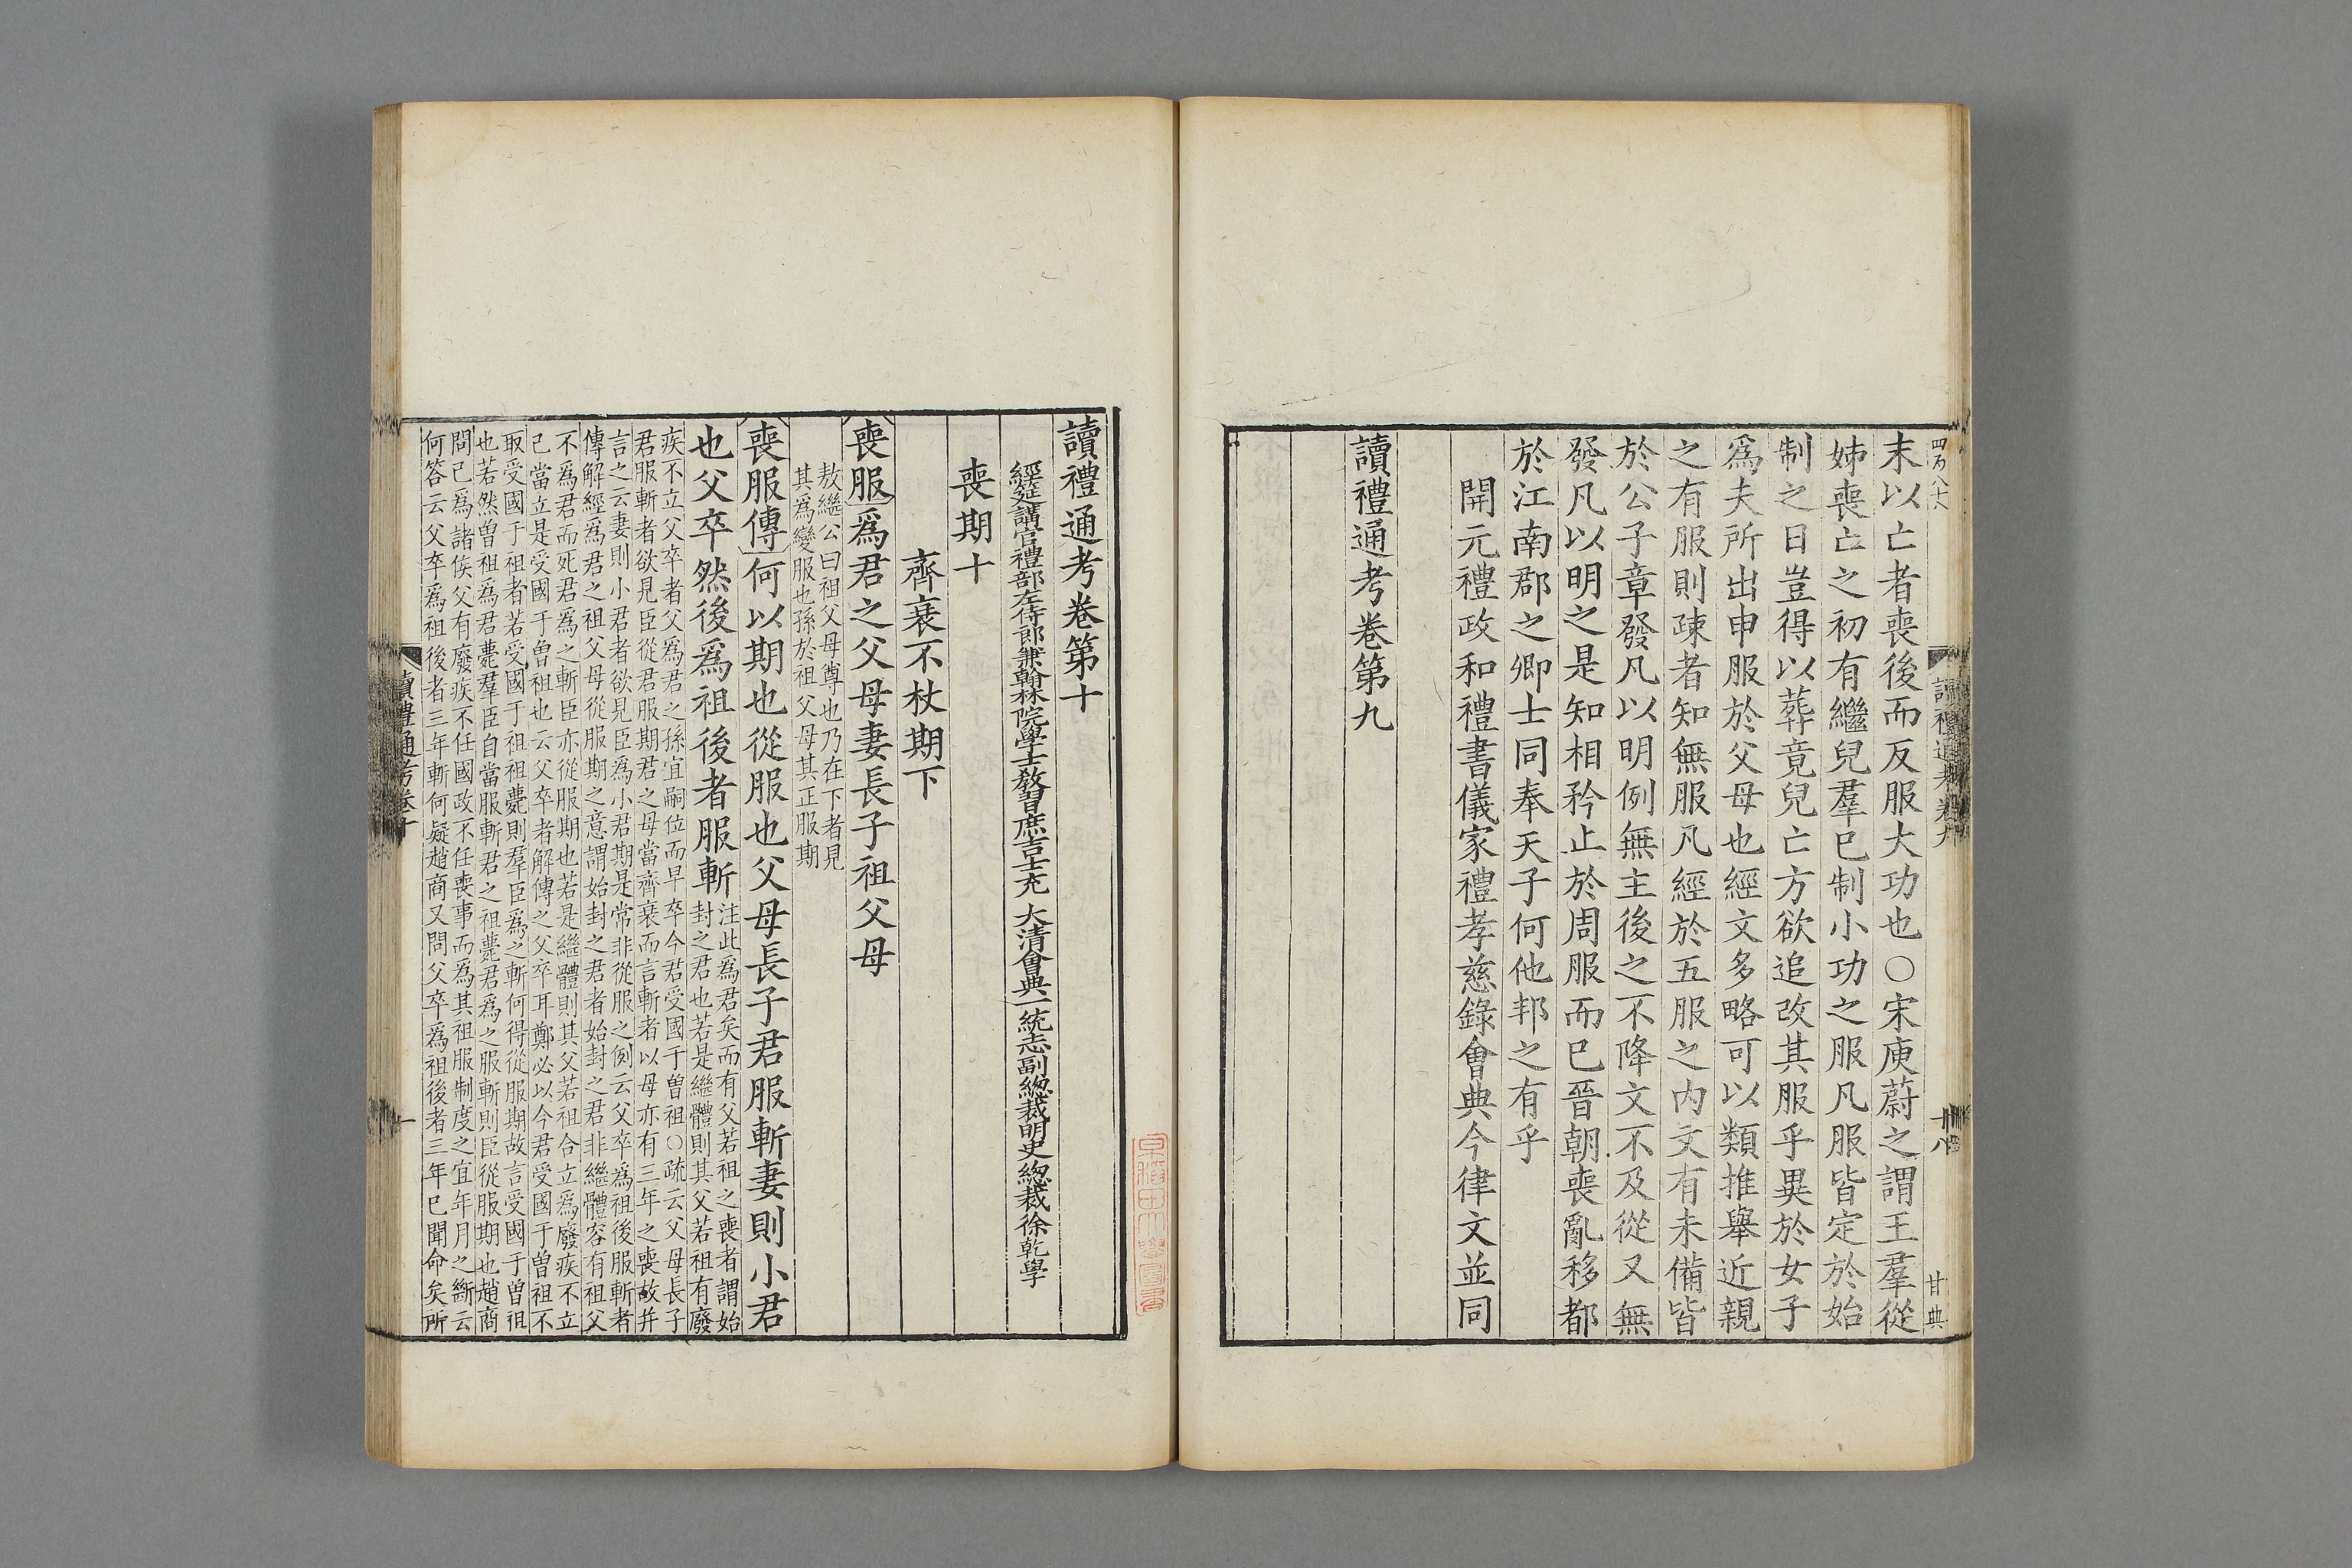 四百八十六
讀禮通考卷九
廿八
甘典
末以亡者喪後而反服大功也○宋庾蔚之謂王羣從
姊喪亡之初有繼兒羣已制小功之服凡服皆定於始
制之日豈得以葬竟兒亡方欲追改其服乎異於女子
爲夫所出申服於父母也經文多略可以類推舉近親
之有服則疎者知無服凡經於五服之内文有未備皆
於公子章發凡以明例無主後之不降文不及從又無
發凡以明之是知相矜止於周服而已晉朝喪亂移都
於江南郡之卿士同奉天子何他邦之有乎
開元禮政和禮書儀家禮孝慈錄會典今律文並同
讀禮通考卷第九
讀禮通考卷第十
經筵講官禮部左侍郎兼翰林院學士敎習庶吉士充 大清會典一統志副總裁明史總裁徐乾學
喪期十
齊衰不杖期下
喪服爲君之父母妻長子祖父母
敖繼公曰祖父母尊也乃在下者見
其爲變服也孫於祖父母其正服期
喪服傳何以期也從服也父母長子君服斬妻則小君
也父卒然後爲祖後者服斬
注此爲君矣而有父若祖之喪者謂始
封之君也若是繼體則其父若祖有廢
疾不立父卒者父爲君之孫宜嗣位而早卒今君受國于曾祖○疏云父母長子
君服斬者欲見臣從君服期君之母當齊衰而言斬者以母亦有三年之喪故并
言之云妻則小君者欲見臣爲小君期是常非從服之例云父卒爲祖後服斬者
傳解經爲君之祖父母從服期之意謂始封之君者始封之君非繼體容有祖父
不爲君而死君爲之斬臣亦從服期也若是繼體則其父若祖合立爲廢疾不立
己當立是受國于曾祖也云父卒者解傳之父卒耳鄭必以今君受國于曾祖不
取受國于祖者若受國于祖祖薨則羣臣爲之斬何得從服期故言受國于曾祖
也若然曾祖爲君薨羣臣自當服斬君之祖薨君爲之服斬則臣從服期也趙商
問己爲諸侯父有廢疾不任國政不任喪事而爲其祖服制度之宜年月之斷云
何答云父卒爲祖後者三年斬何疑趙商又問父卒爲祖後者三年已聞命矣所
讀禮通考卷十
一
早稻田大學圖書